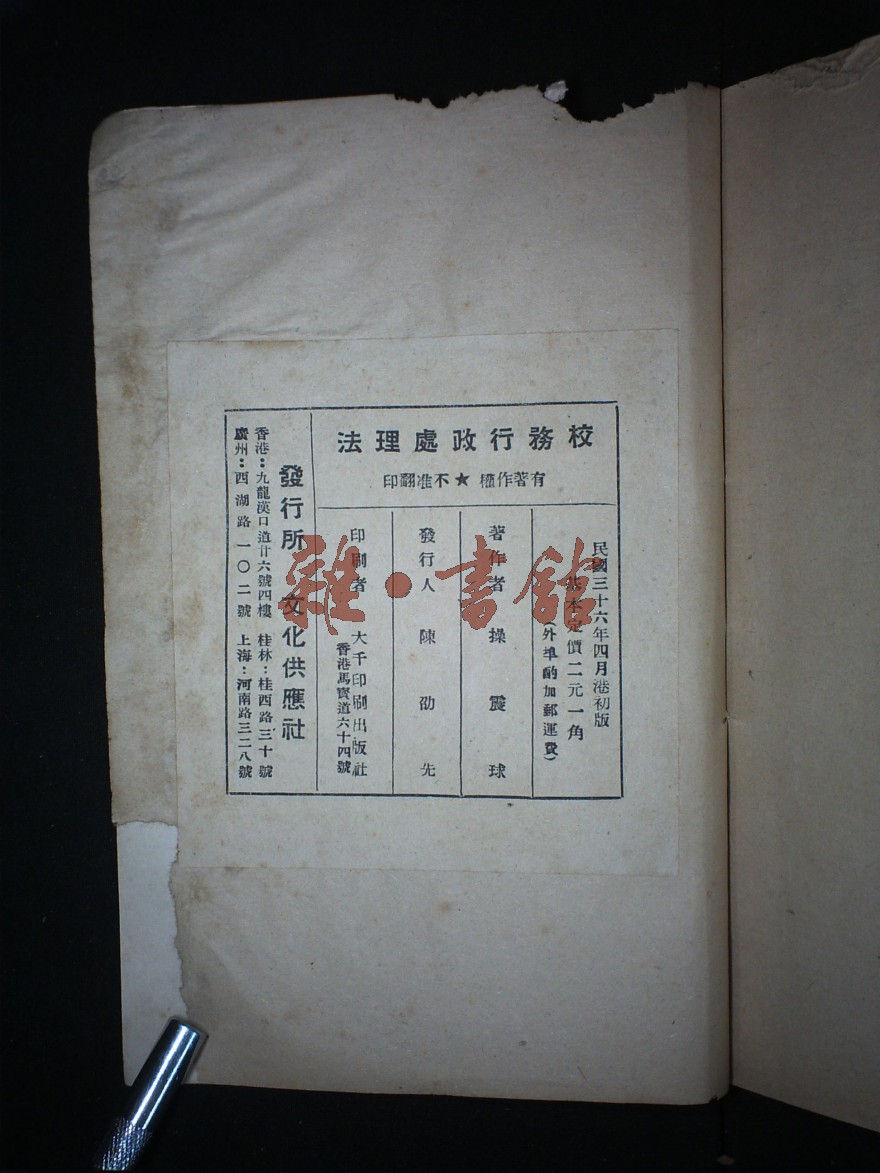 校務行政處理法
有著作權★不准翻印
民國三十六年四月港初版
基本定價二元一角
(外埠酌加郵運費)
著作者 操震球
發行人 陳劭先
印刷者 大千印刷出版社
香港馬寶道六十四號
發行所 文化供應社
香港:九龍漢口道廿六號四樓 桂林:桂西路三十號
廣州:西湖路一〇二號 上海:河南路三二八號
雜·書館